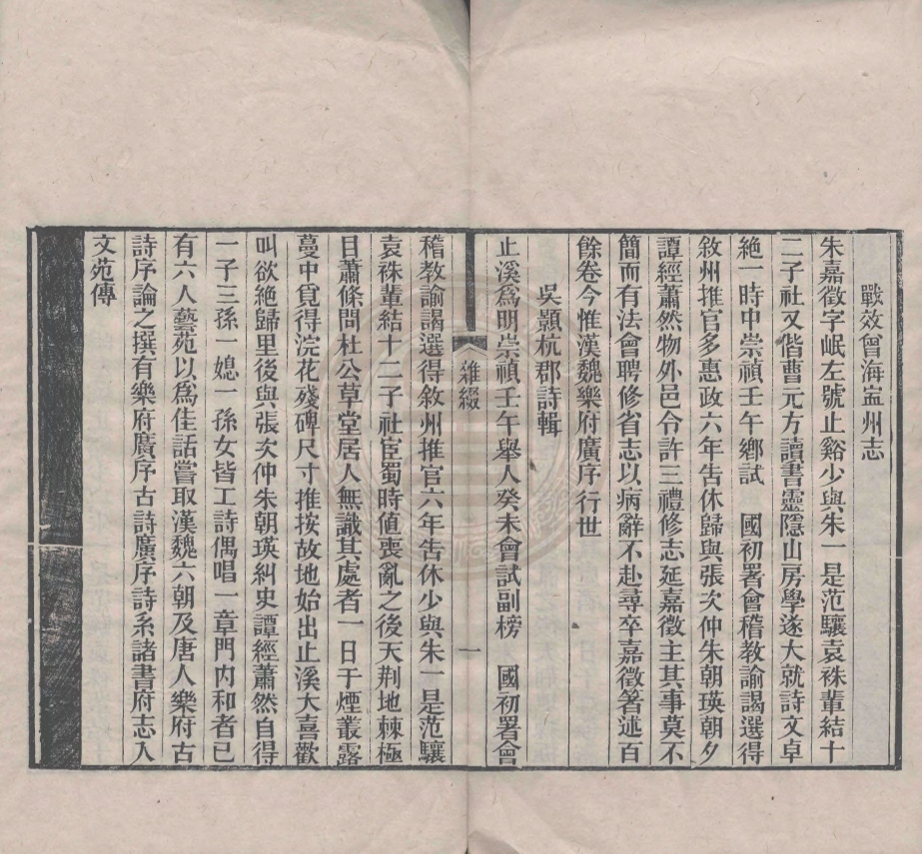 戰效曾海寍州志
朱嘉徵字岷左號止谿少與朱一是范驤袁袾輩結十
二子社又偕曹元方讀書靈隱山房學遂大就詩文卓
絶一時中崇禎壬午鄉試　國初署會稽敎諭謁選得
敘州推官多惠政六年吿休歸與張次仲朱朝瑛朝夕
譚經蕭然物外邑令許三禮修志延嘉徵主其事莫不
簡而有法會聘修省志以病辭不赴尋卒嘉徵著述百
餘卷今惟漢魏樂府廣序行世
吳顥杭郡詩輯
止溪爲明崇禎壬午舉人癸未會試副榜　國初署會
雜綴
一
稽敎諭謁選得敘州推官六年吿休少與朱一是范驤
袁袾輩結十二子社宦蜀時値喪亂之後天荆地棘極
目蕭條問杜公草堂居人無識其處者一日于煙叢露
蔓中覓得浣花殘碑尺寸推按故地始出止溪大喜歡
叫欲絶歸里後與張次仲朱朝瑛糾史譚經蕭然自得
一子三孫一媳一孫女皆工詩偶唱一章門內和者已
有六人藝苑以爲佳話嘗取漢魏六朝及唐人樂府古
詩序論之撰有樂府廣序古詩廣序詩系諸書府志入
文苑傳